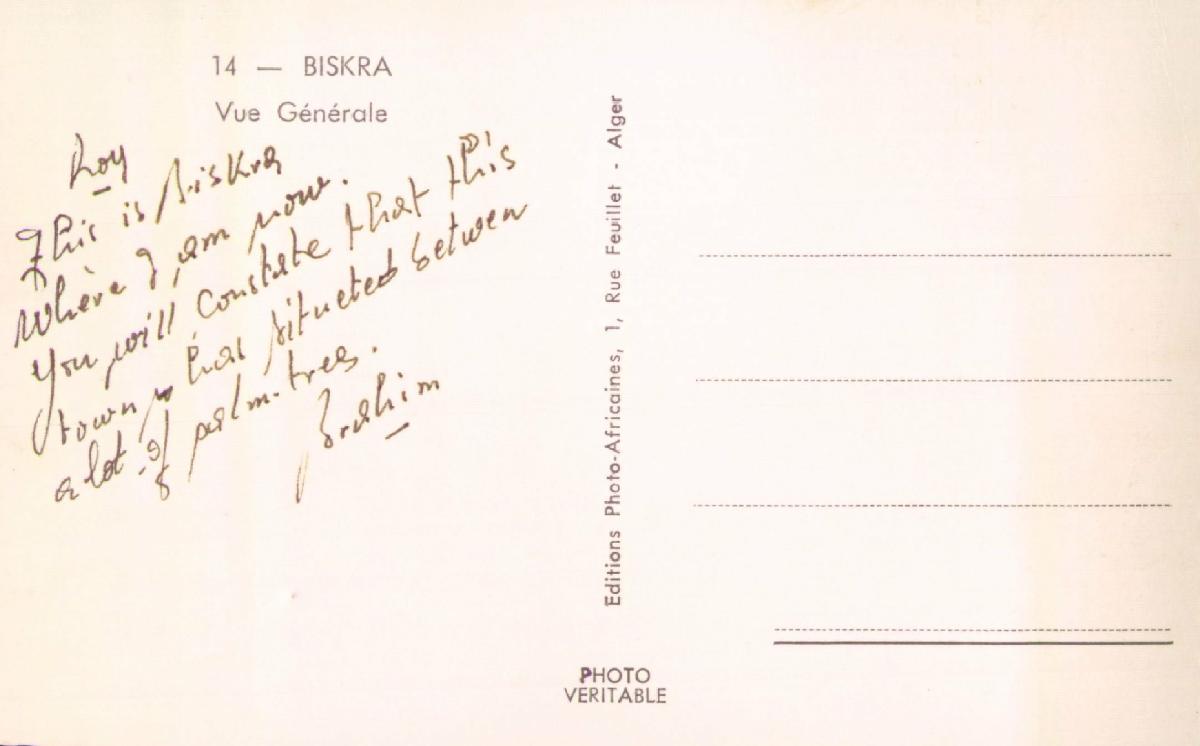 14 — BISKRA
Vue Générale
Roy
This is Biskra
Where I am now.
You will constate that this
town has situeted betwen
a lot of palm-tres.
Brahim
Editions Photo-Africaines, 1, Rue Feuillet - Alger
PHOTO
VERITABLE